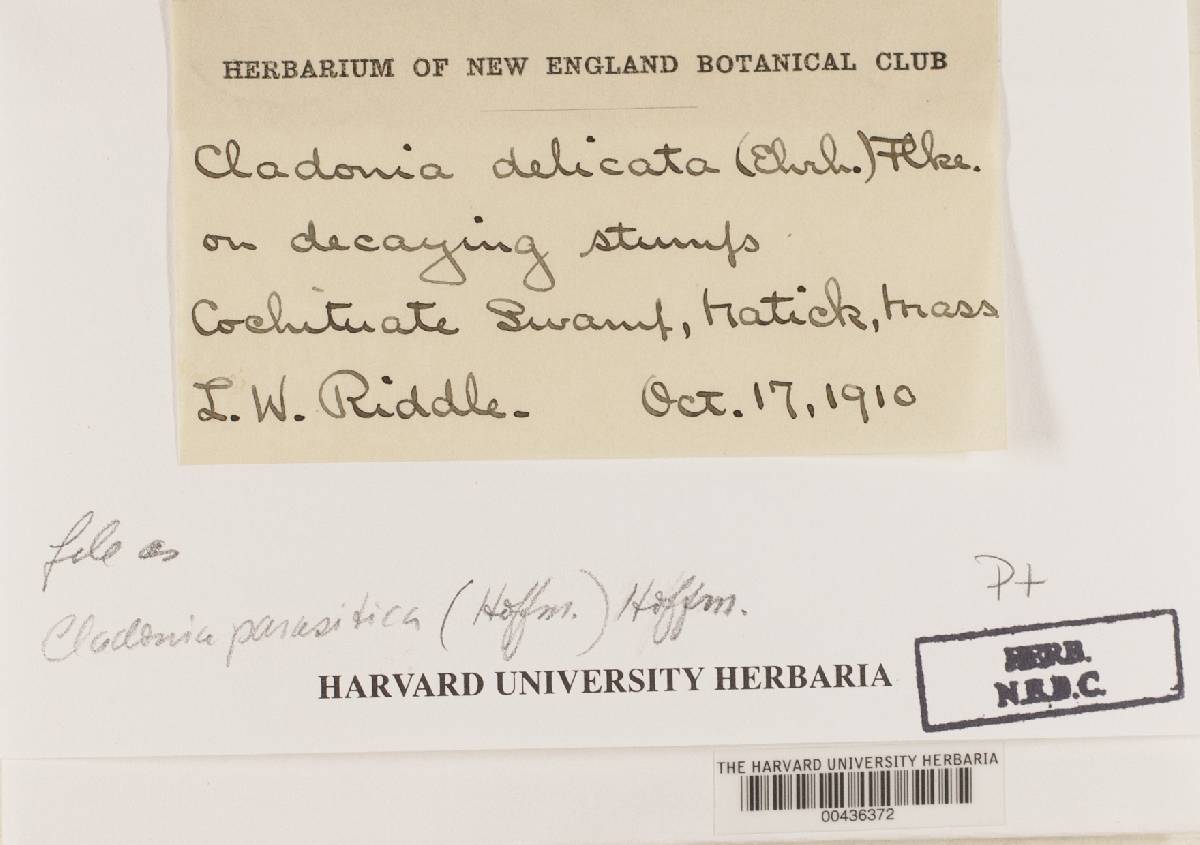 HERBARIUM OF NEW ENGLAND BOTANICAL CLUB
Cladonia delicata (Ehrh.) Flke.
on decaying stumps
Cochituate Swamp, Natick, Mass
L. W. Riddle. Oct. 17, 1910
file as
Cladonia parasitica (Hoffm.) Hoffm.
P+
HARVARD UNIVERSITY HERBARIA
HERB.
N.E.B.C.
THE HARVARD UNIVERSITY HERBARIA
00436372